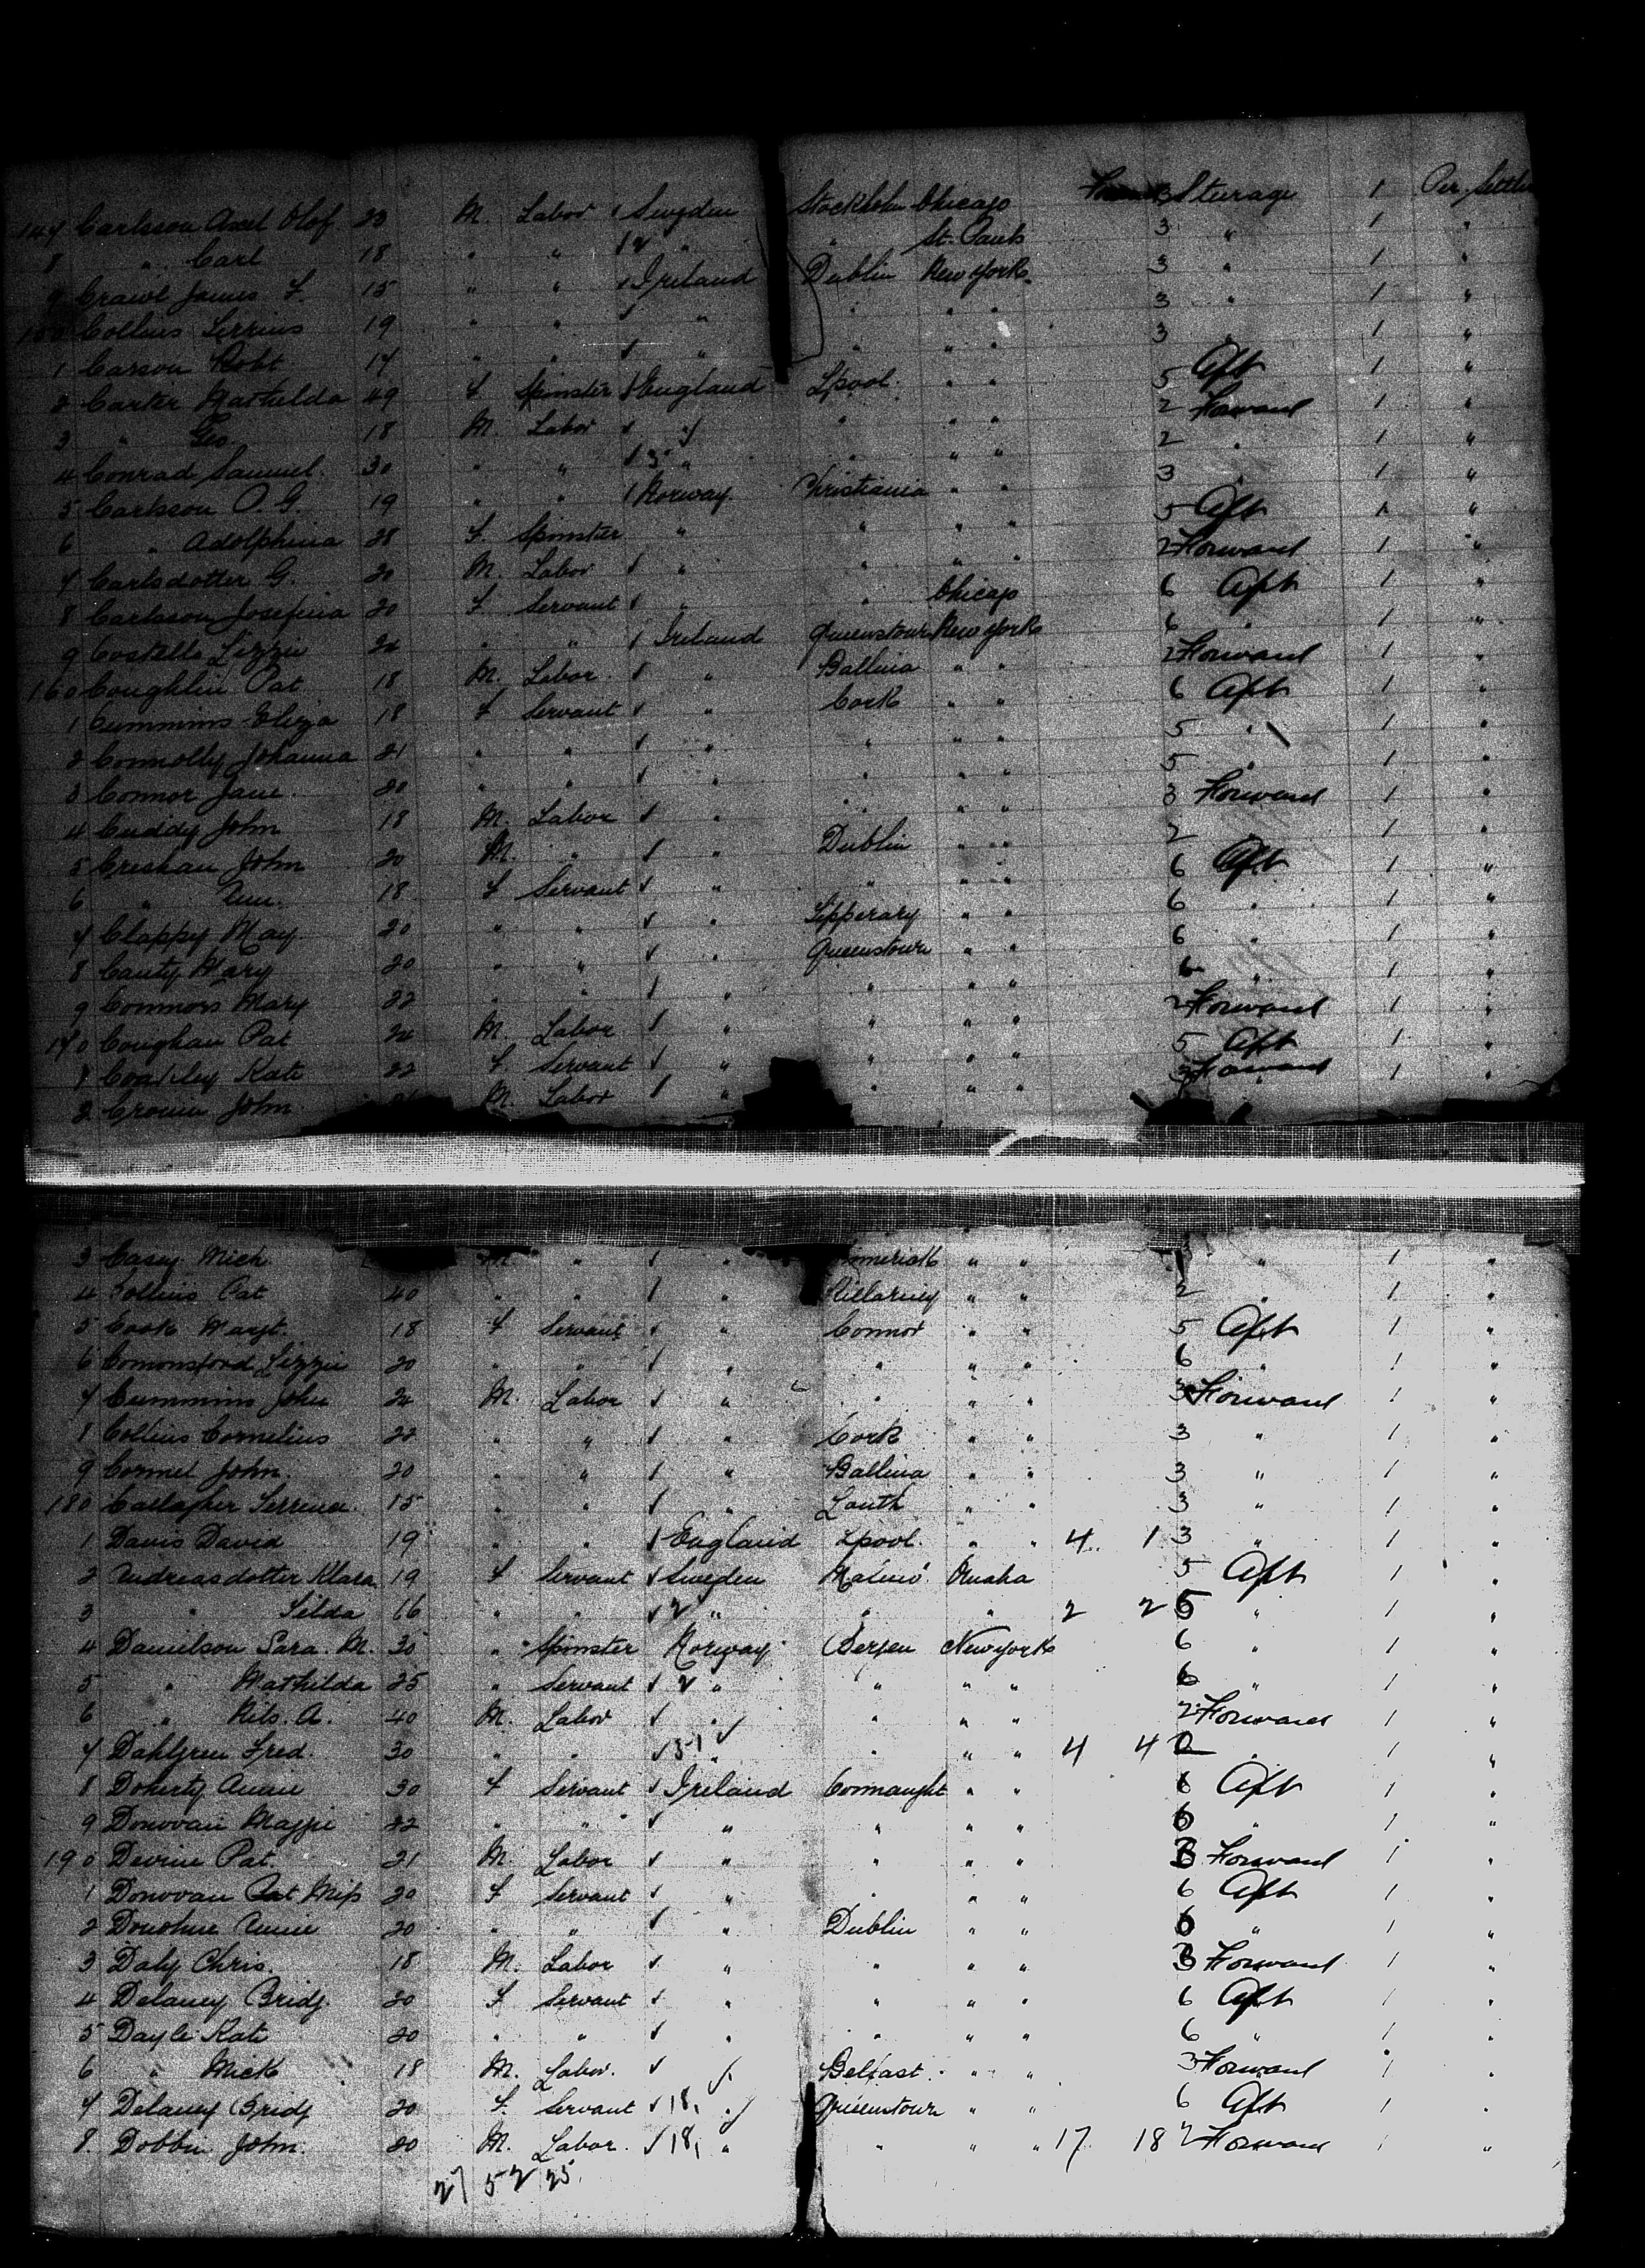 147 Carlsson Axel Olof 23 M. Labor ✓ Sweden Stockholm Chicago 3 Steerage 1 Per. Settle
8 " Carl 18 " " ✓ 2 " " St. Paul 3 " 1 "
9 Crawl James F. 15 " " ✓ Ireland Dublin New York 3 " 1 "
150 Collins 19 " " ✓ " " " " 3 " 1 "
1 Carson Robt 17 " " ✓ " " " " 3 " 1 "
2 Carter Mathilda 49 F Spinster ✓ England Lpool. " " 5 Aft 1 "
3 " Geo. 18 M. Labor ✓ " " " " 2 Forward 1 "
4 Conrad Samuel 30 " " ✓ 3 " " " " 2 " 1 "
5 Carlsson O. G. 19 " " ✓ Norway. Christiania " " 3 " 1 "
6 " Adolphina 28 F. Spinster " " " " 5 Aft 1 "
7 Carlsdotter G. 20 M. Labor ✓ " " " " 2 Forward 1 "
8 Carlsson Josefina 20 F Servant ✓ " " Chicago 6 Aft 1 "
9 Costello Lizzie 24 " " ✓ Ireland Queenstown New York 6 " 1 "
160 Coughlin Pat 18 M. Labor. ✓ " Ballina " " 2 Forward 1 "
1 Cummins Eliza 18 F Servant ✓ " Cork " " 6 Aft 1 "
2 Connolly Johanna 21 " " ✓ " " " " 5 " 1 "
3 Connor Jane. 20 " " ✓ " " " " 5 " 1 "
4 Cuddy John 18 M. Labor ✓ " " " " 3 Forward 1 "
5 Creshan John 20 M. " ✓ " Dublin " " 2 " 1 "
6 " Ann. 18 F Servant ✓ " " " " 6 Aft 1 "
7 Clappy May 20 " " ✓ " Tipperary " " 6 " 1 "
8 Canty Mary 20 " " ✓ " Queenstown " " 6 " 1 "
9 Connors Mary 22 " " ✓ " " " " 6 " 1 "
170 Coughan Pat 24 M. Labor ✓ " " " " 2 Forward 1 "
1 Coakley Kate 22 F. Servant ✓ " " " " 5 Aft 1 "
2 Cronin John M. Labor ✓ " " " " 3 Forward 1 "
3 Casey Mick M " ✓ " " " " 1 "
4 Collins Pat 40 " " ✓ " Killarney " " 2 " 1 "
5 Cook Margt. 18 F Servant ✓ " Connor " " 5 Aft 1 "
6 Comonsford Lizzie 20 " " ✓ " " " " 6 " 1 "
7 Cummins John 24 M. Labor ✓ " " " " 3 Forward 1 "
8 Collins Cornelius 22 " " ✓ " Cork " " 3 " 1 "
9 Cormel John. 20 " " ✓ " Ballina " " 3 " 1 "
180 Callagher 15 " " ✓ " Louth " " 3 " 1 "
1 Davis David 19 " " ✓ England Lpool. " " 4 1 3 " 1 "
2 Andreasdotter Klara 19 F Servant ✓ Sweden Malmö Omaha 5 Aft 1 "
3 " Silda 16 " " ✓ 2 " " " 2 2 5 " 1 "
4 Danielson Sara. M. 35 " Spinster Norway Bergen New York 6 " 1 "
5 " Mathilda 25 " Servant ✓ 2 " " " " 6 " 1 "
6 " Nils. A. 40 M. Labor ✓ " " " " 2 Forward 1 "
7 Dahlgren Fred. 30 " " ✓ " " " " 4 4 2 " 1 "
8 Doherty Annie 30 F Servant ✓ Ireland Connaught " " 6 Aft 1 "
9 Donovan Maggie 22 " " ✓ " " " " 6 " 1 "
190 Devine Pat 21 M. Labor ✓ " " " " 3 Forward 1 "
1 Donovan Pat Miss 20 F Servant ✓ " " " " 6 Aft 1 "
2 Donohue Annie 20 " " ✓ " Dublin " " 6 " 1 "
3 Daly Chris. 18 M. Labor ✓ " " " " 3 Forward 1 "
4 Delaney Bridg. 20 F Servant ✓ " " " " 6 Aft 1 "
5 Dayle Kate 20 " " ✓ " " " " 6 " 1 "
6 " Mick 18 M. Labor. ✓ Belfast. " " 3 Forward 1 "
7 Delaney Bridg 20 F. Servant ✓ 18, Queenstown " " 6 Aft 1 "
8. Dobbin John. 20 M. Labor. ✓ 18, " " " " 17 18 2 Forward 1 "
27 52 25